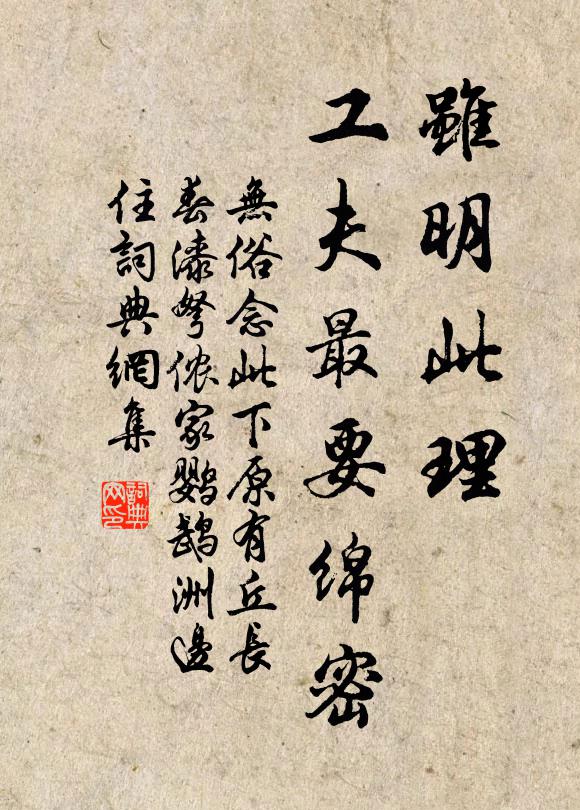 雖明此理
工夫最要綿密
無俗念此下原有丘長
春漆弩侬家鹦鹉洲邊
住詞典網集
詞典网印